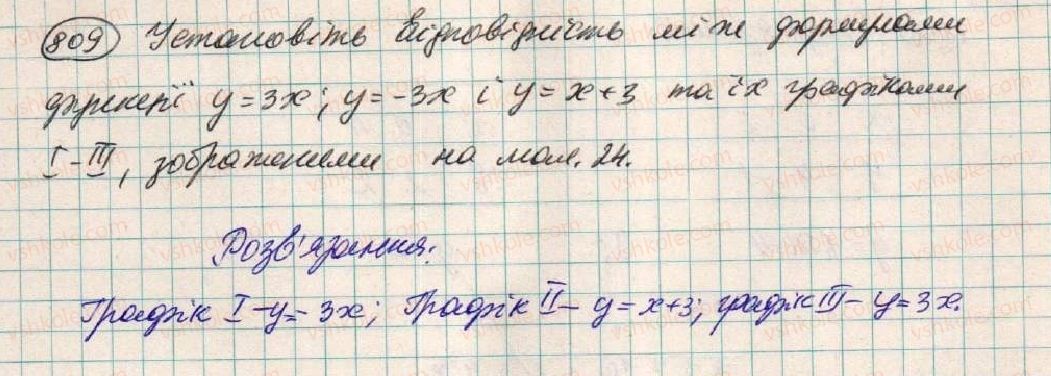 809 Установіть відповідність між формулами
функцій y = 3x; y = -3x і y = x + 3 та їх графіками
I - III, зображеними на мал. 24.
Розв'язання:
Графік I - y = -3x; Графік II - y = x+3; графік III - y = 3x.